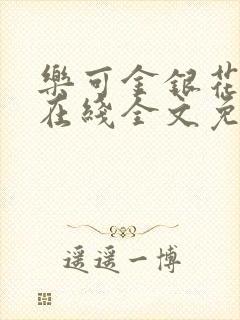 樂可金銀花
在綫全文免
遥遥一博